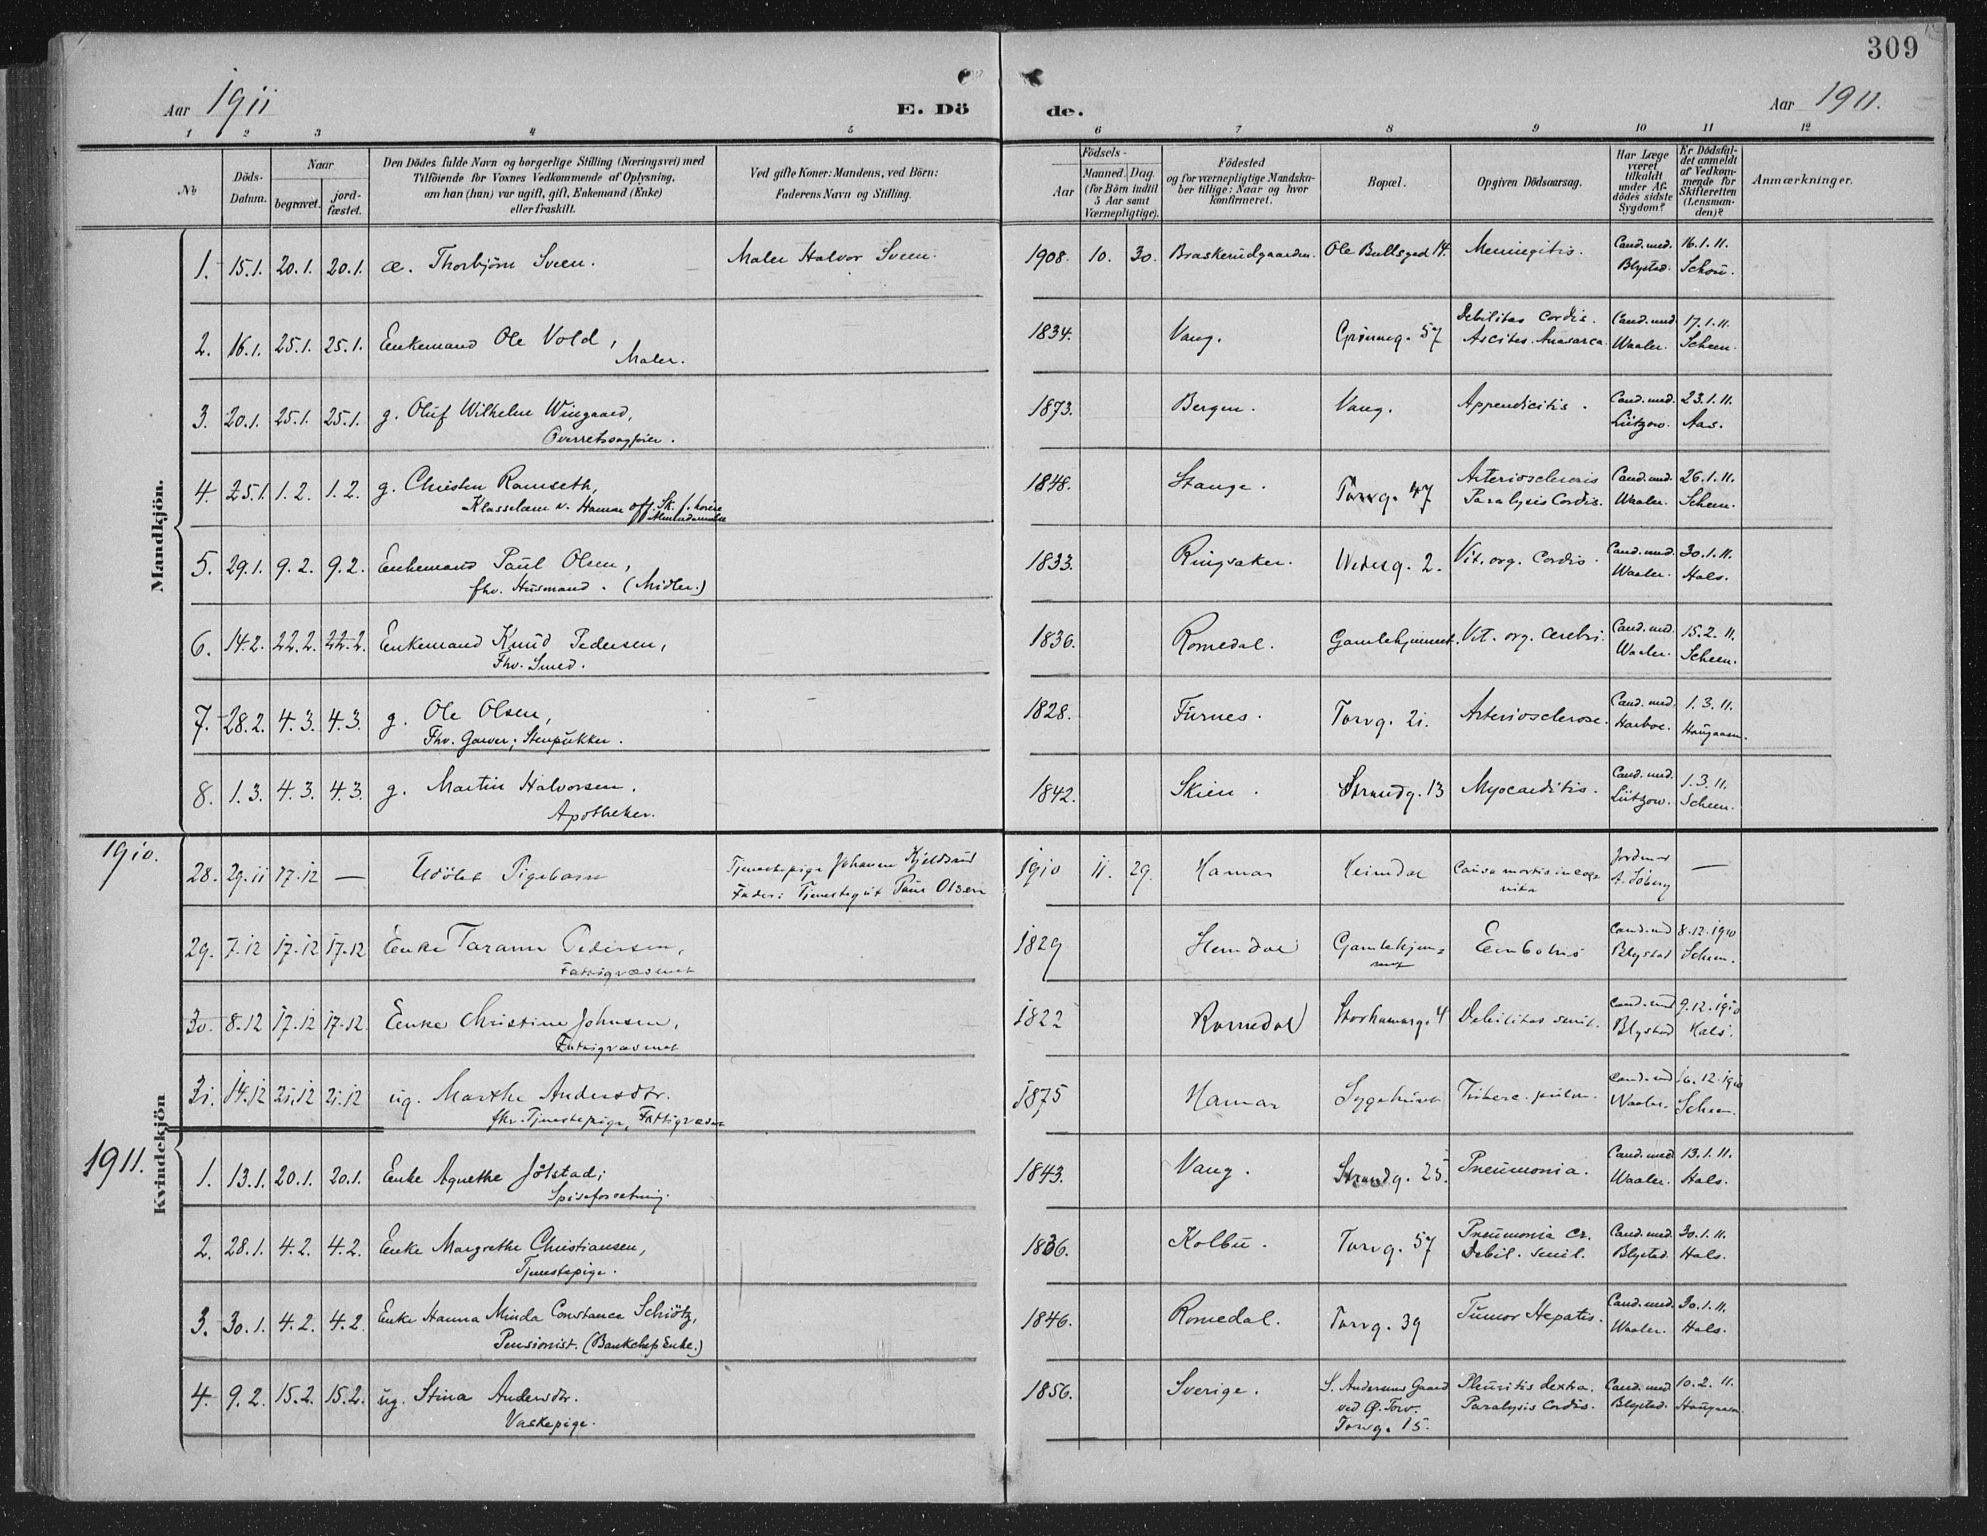 309
Aar 1911
E. Dö
de.
Aar 1911.
1 2 3 4 5 6 7 8 9 10 11 12
No
Döds-Datum.
Naar
begravet.
jord-fæstet.
Den Dödes fulde Navn og borgerlige Stilling (Næringsvei) med
Tilföiende for Voxnes Vedkommende af Oplysning,
om han (hun) var ugift, gift, Enkemand (Enke)
eller fraskilt.
Ved gifte Koner: Mandens, ved Börn:
Faderens Navn og Stilling.
Födsels-
Aar
Maaned. Dag.
(for Börn indtil
5 Aar samt
Værnepligtige).
Födested
og for værnepligtige Mandskaber tillige: Naar og hvor
konfirmeret.
Bopæl.
Opgiven Dödsaarsag.
Har Læge
været
tilkaldt
under Af-
dödes sidste
Sygdom?
Er Dödsfal-
det anmeldt
af Vedkom-
mende for
Skifteretten
(Lensman-
den)?
Anmærkninger.
Mandkjön.
1. 15.1. 20.1. 20.1. æ. Thorbjörn Sveen. Maler Halvor Sveen. 1908. 10. 30. Braskerudgaarden. Ole Bullsgad 14. Meningitis. Cand. med. Blystad. 16.1.11. Schou.
2. 16.1. 25.1. 25.1. Enkemand Ole Vold, Maler. 1834. Vang. Grönneg. 57 Debilitas Cordis. Ascites. Anasarca. Cand. med. Waaler. 17.1.11. Scheen.
3. 20.1. 25.1. 25.1. g. Oluf Wilhelm Wingaard, Overretssagförer. 1873. Bergen. Vang. Appendicitis. Cand. med. Lützow. 23.1.11. Aas.
4. 25.1. 1.2. 1.2. g. Christen Ramseth, Klasselærer v. Hamar off. Sk. f. höiere Almendannelse 1848. Stange. Torvg. 47 Arteriosclerosis Paralysis Cordis. Cand. med. Waaler. 26.1.11. Scheen.
5. 29.1. 9.2. 9.2. Enkemand Paul Olsen, fhv. Husmand. (Midler.) 1833. Ringsaker. Vedesg. 2. Vit. org. Cordis. Cand. med. Waaler. 30.1.11. Hals.
6. 14.2. 22.2. 22.2. Enkemand Knud Pedersen, Fhv. Smed. 1836. Romedal. Gamlehjemmet. Vit. org. cerebri. Cand. med. Waaler. 15.2.11. Scheen.
7. 28.2. 4.3. 4.3. g. Ole Olsen, Fhv. Garver; Stenpukker. 1828. Furnes. Torvg. 21. Arteriosclerose. Cand. med. Harboe. 1.3.11. Haugaasen.
8. 1.3. 4.3. 4.3. g. Martin Halvorsen. Apotheker. 1842. Skien. Strandg. 13 Myocarditis. Cand. med. Lützow. 1.3.11. Scheen.
Kvindekjön
1910.
28. 29.11 17.12 — Udöbt Pigebarn Tjenestepige Johanne Kjeldsrud Fader: Tjenestegut Paul Olsen 1910 11. 29. Hamar Heimdal Causa mortis incognita Jordmor A. Söberg —
29. 7.12 17.12 17.12 Enke Taran Pedersen, Fattigvæsenet 1829 Hemdal Gamlehjemmet Embolus Cand. med Blystad 8.12.1910 Scheen.
30. 8.12 17.12 17.12 Enke Christine Johnsen, Fattigvæsenet 1822 Romedal Storhamarg. 4 Debilitas senil. Cand. med Blystad 9.12.1910 Hals.
31. 14.12 21.12 21.12 ug. Marthe Andersdtr. fhv. Tjenestepige, Fattigvæsen 1875 Hamar Sygehuset Tuberc. pulm. Cand. med Waaler. 16.12.1910 Scheen.
1911.
1. 13.1. 20.1. 20.1. Enke Agnethe Jölstad; Spiseforretning. 1843. Vang. Strandg. 25. Pneumonia. Cand. med Waaler. 13.1.11. Hals.
2. 28.1. 4.2. 4.2. Enke Margrethe Christiansen, Tjenestepige. 1836. Kolbu. Torvg. 57 Pneumonia cr. Debil. senil. Cand. med. Blystad. 30.1.11. Hals.
3. 30.1. 4.2. 4.2. Enke Hanna Minda Constance Schiötz, Pensionist. (Bankchefs Enke.) 1846. Romedal. Torvg. 39 Tumor Hepatis. Cand. med. Waaler. 30.1.11. Hals.
4. 9.2. 15.2. 15.2. ug. Stina Andersdtr. Vaskepige. 1856. Sverige. S. Andersens Gaard ved Ø. Torv. Torvg. 15. Pleuritis dextra. Paralysis Cordis. Cand. med Blystad. 10.2.11. Haugaasen.